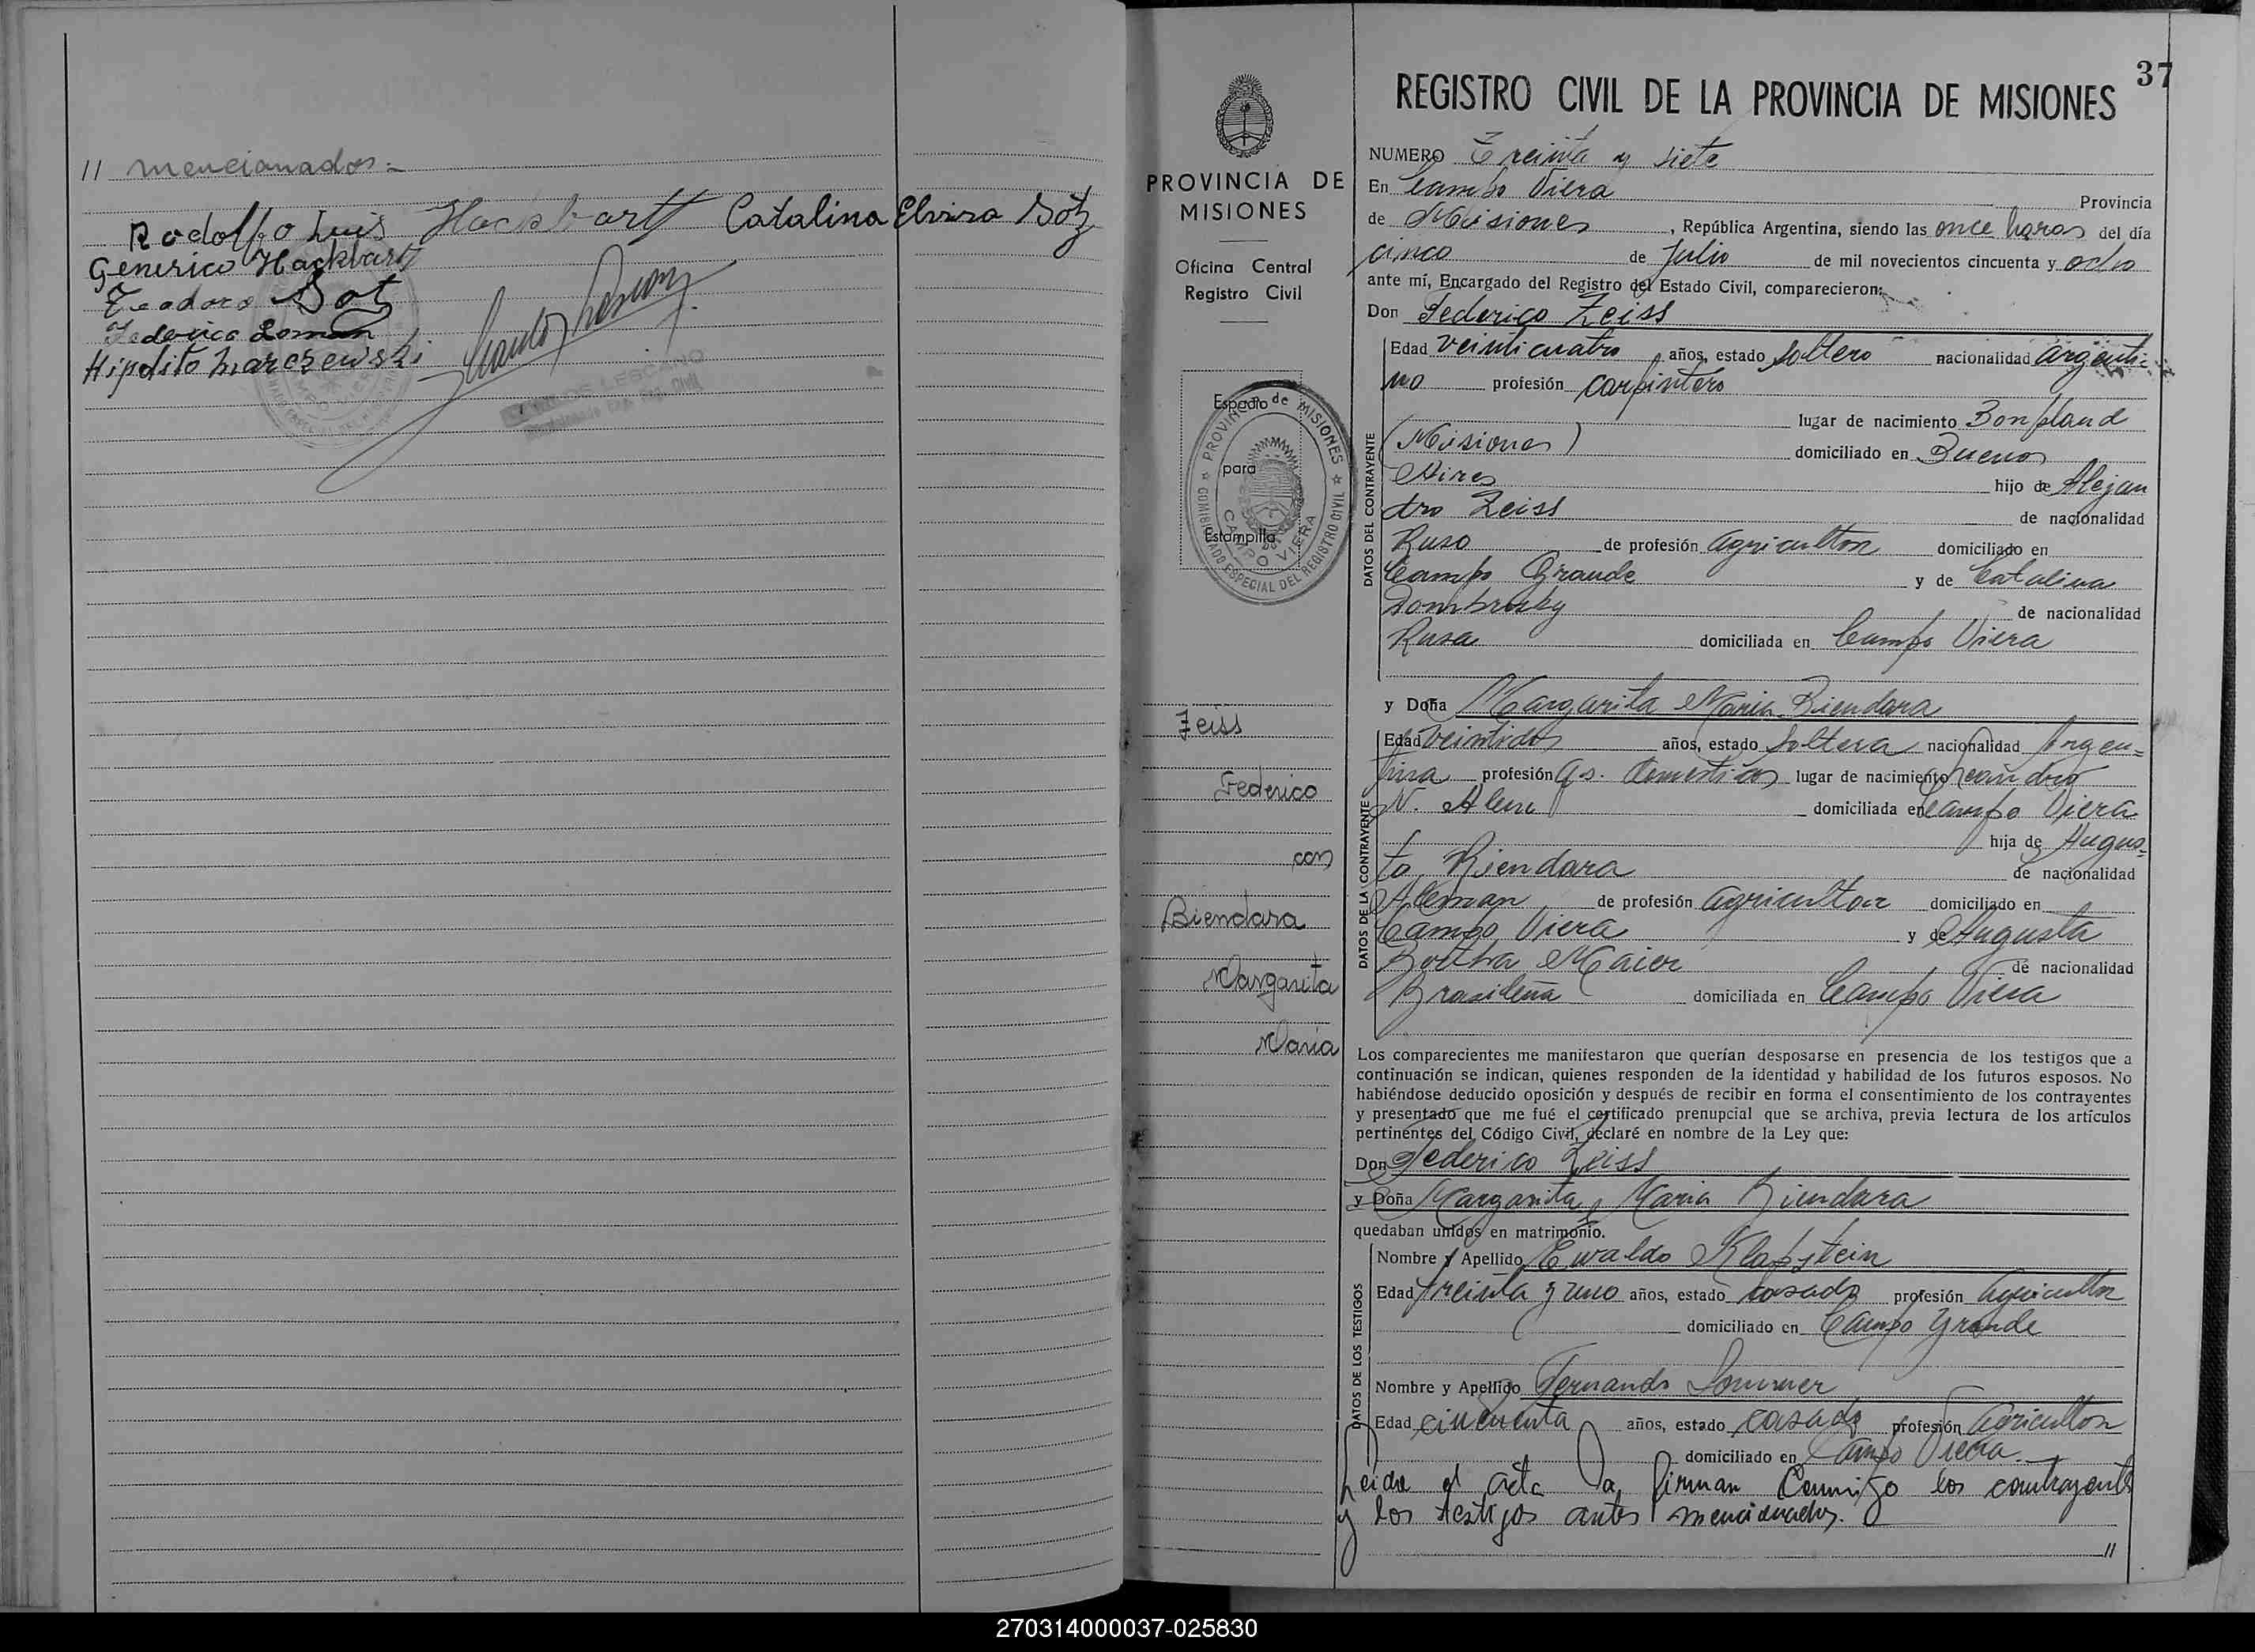 // mencionados.-
Rodolfo Luis Hackbartt Catalina Elvira Sotz
Generico Hackbart
Teodoro Sotz
Federico Loman
Hipolito Marczewski
37
REGISTRO CIVIL DE LA PROVINCIA DE MISIONES
PROVINCIA DE
MISIONES
Oficina Central
Registro Civil
Espacio
para
Estampilla
PROVINCIA de MISIONES
COMISIONADO ESPECIAL DEL REGISTRO CIVIL
CAMPO VIERA
Zeiss
Federico
con
Biendara
Margarita
María
NUMERO Treinta y siete
En Campo Viera Provincia
de Misiones, República Argentina, siendo las once horas del día
cinco de Julio de mil novecientos cincuenta y ocho
ante mí, Encargado del Registro del Estado Civil, comparecieron:
Don Federico Zeiss
DATOS DEL CONTRAYENTE
Edad veinticuatro años, estado soltero nacionalidad argenti-
no profesión carpintero
lugar de nacimiento Bonpland
(Misiones) domiciliado en Buenos
Aires hijo de Alejan
dro Zeiss de nacionalidad
Ruso de profesión agricultor domiciliado en
Campo Grande y de Catalina
Dombrosky de nacionalidad
Rusa domiciliada en Campo Viera
y Doña Margarita Maria Biendara
DATOS DE LA CONTRAYENTE
Edad veintidos años, estado soltera nacionalidad Argen-
tina profesión qs. domesticos lugar de nacimiento Leandro
N. Alem domiciliada en Campo Viera
hija de Augus-
to Biendara de nacionalidad
Aleman de profesión agricultor domiciliado en
Campo Viera y de Augusta
Bertha Maier de nacionalidad
Brasileña domiciliada en Campo Viera
Los comparecientes me manifestaron que querían desposarse en presencia de los testigos que a
continuación se indican, quienes responden de la identidad y habilidad de los futuros esposos. No
habiéndose deducido oposición y después de recibir en forma el consentimiento de los contrayentes
y presentado que me fué el certificado prenupcial que se archiva, previa lectura de los artículos
pertinentes del Código Civil, declaré en nombre de la Ley que:
Don Federico Zeiss
y Doña Margarita Maria Biendara
quedaban unidos en matrimonio.
DATOS DE LOS TESTIGOS
Nombre y Apellido Ewaldo Klapstein
Edad treinta y uno años, estado casado profesión agricultor
domiciliado en Campo Grande
Nombre y Apellido Fernando Sommer
Edad cincuenta años, estado casado profesión agricultor
domiciliado en Campo Viera.-
Leida el acta la firman conmigo los contrayentes
y los testigos antes mencionados.
//
270314000037-025830